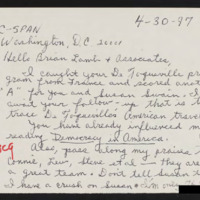 4-30-97
C-SPAN
Washington, D.C. 20001
Hello Brian Lamb & Associates,
"I caught your De Toqueville pro
gram from France and scored another
"A" for you and Susan Swain. I
await your follow-up that is to
trace De Toqueville's American travels
You have already influenced me
reading Democracy in America.
Also, pass along my praise
Connie, Lew, Steve et al — they are
a great team. Don't tell Susan
I have a crush on Susan